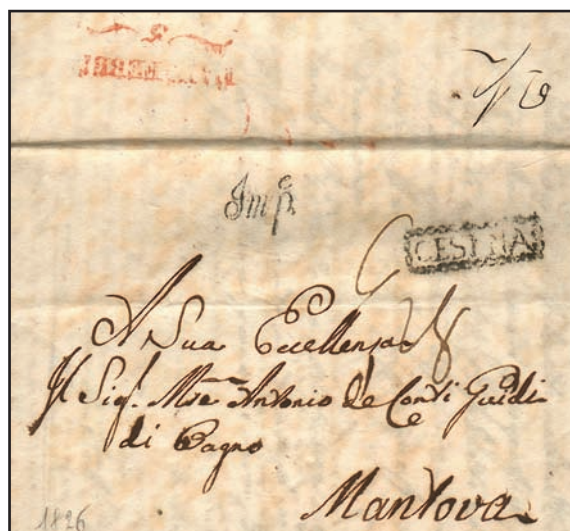 Imp.
CESENA
A Sua Eccellenza
Il Sig.r Mse Antonio de Conti Guidi
di Bagno
Mantova
1826